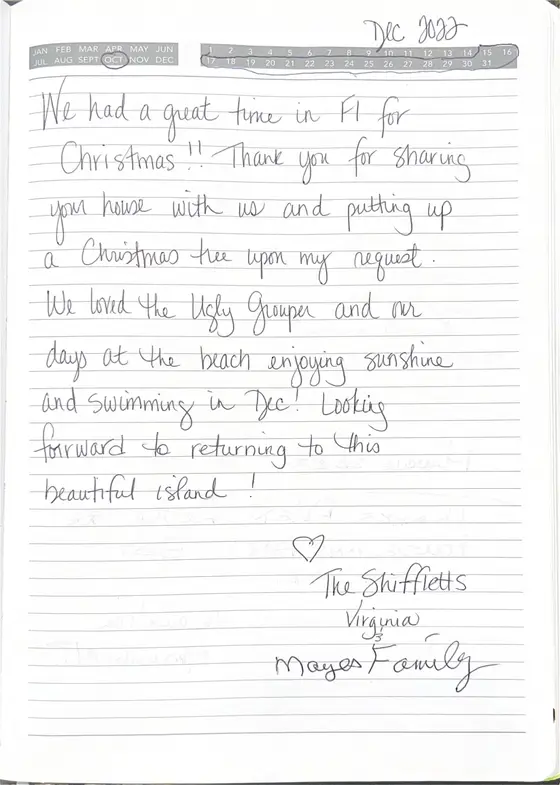 Dec 2022
JAN FEB MAR APR MAY JUN
JUL AUG SEPT OCT NOV DEC
1 2 3 4 5 6 7 8 9 10 11 12 13 14 15 16
17 18 19 20 21 22 23 24 25 26 27 28 29 30 31
We had a great time in Fl for
Christmas!! Thank you for sharing
your house with us and putting up
a Christmas tree upon my request.
We loved the Ugly Grouper and our
days at the beach enjoying sunshine
and swimming in Dec! Looking
forward to returning to this
beautiful island!
♡
The Shiffletts
Virginia
&
Mayes Family